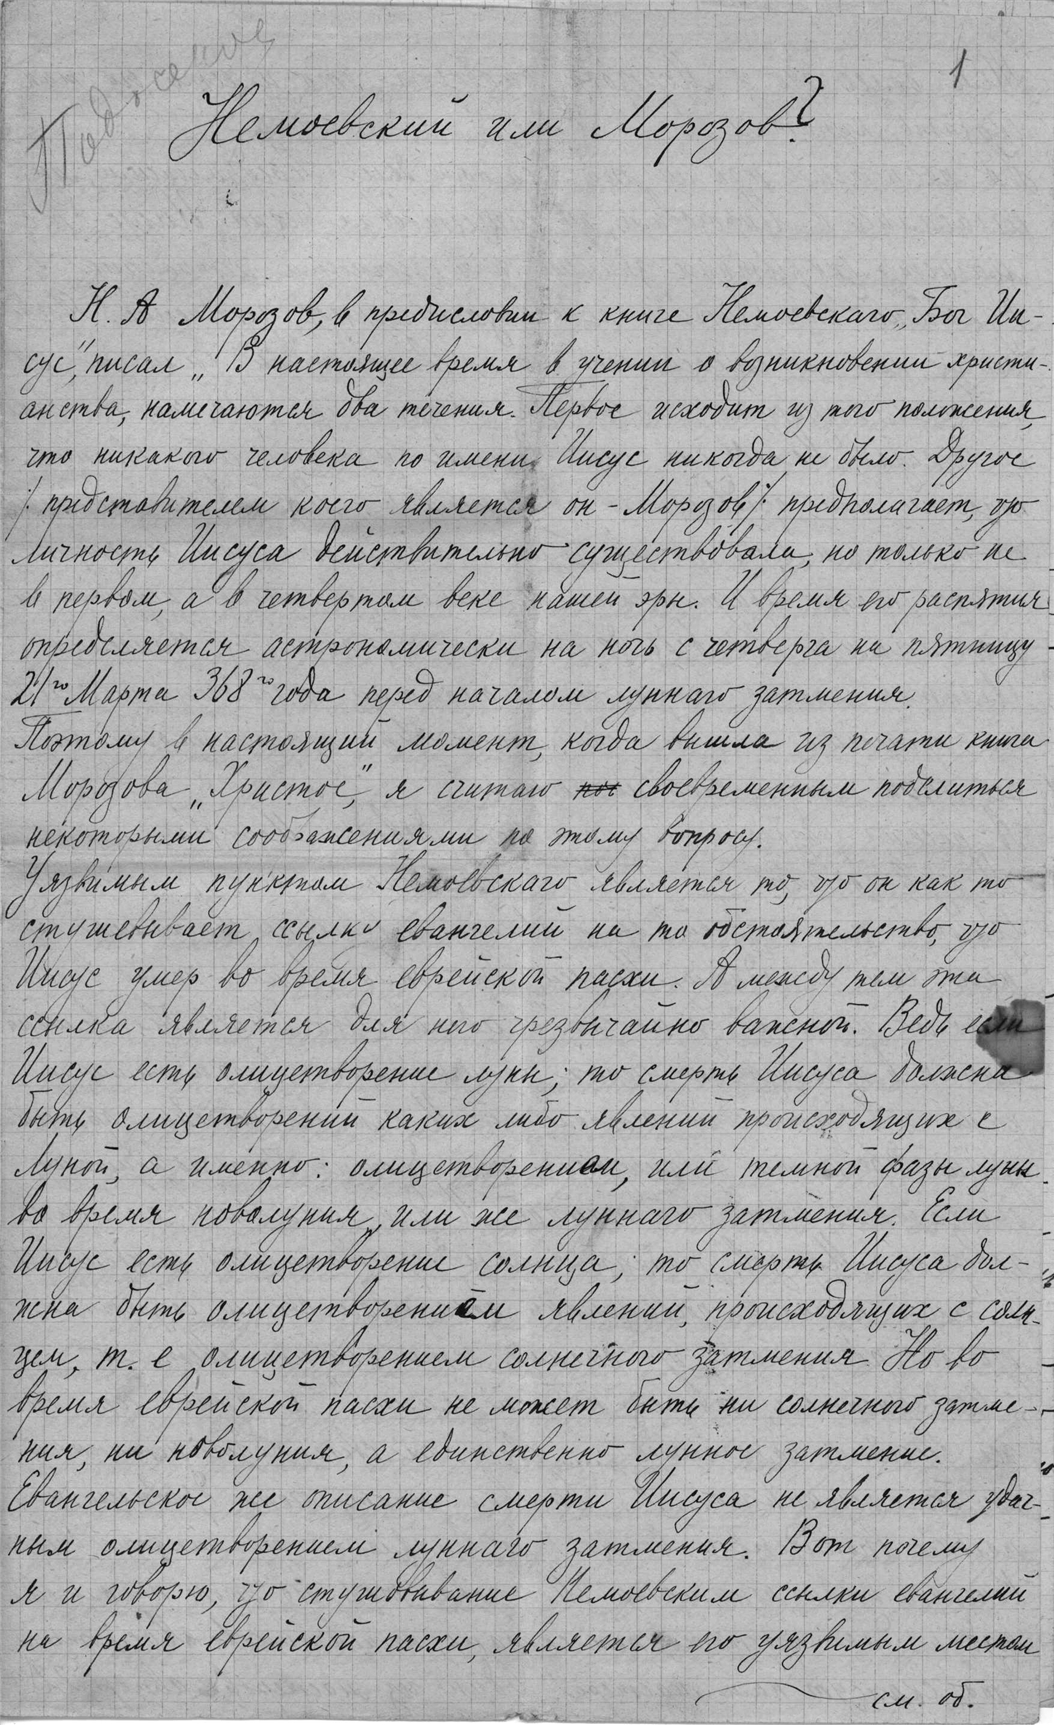 1
Немоевский или Морозов?
Н. А Морозов, в предисловии к книге Немоевскаго „Бог Ии-
сус", писал „В настоящее время в учении о возникновении христи-
анства, намечаются два течения. Первое исходит из того положения,
что никакого человека по имени Иисус никогда не было. Другое
/: представителем коего является он - Морозов :/ предполагает, что
личность Иисуса действительно существовала, но только не
в первом, а в четвертом веке нашей эры. И время его распятия
определяется астрономически на ночь с четверга на пятницу
21го Марта 368го года перед началом луннаго затмения.
Поэтому в настоящий момент, когда вышла из печати книга
Морозова „Христос", я считаю своевременным поделиться
некоторыми соображениями по этому вопросу.
Уязвимым пунктом Немоевскаго является то, что он как то
стушевывает ссылку евангелий на то обстоятельство, что
Иисус умер во время еврейской пасхи. А между тем эта
ссылка является для него чрезвычайно важной. Ведь если
Иисус есть олицетворение луны; то смерть Иисуса должна
быть олицетворений каких либо явлений происходящих с
Луной, а именно: олицетворением, или темной фазы луны
во время новолуния, или же луннаго затмения. Если
Иисус есть олицетворение солнца; то смерть Иисуса дол-
жна быть олицетворением явлений, происходящих с солн-
цем, т. е олицетворением солнечного затмения. Но во
время еврейской пасхи не может быть ни солнечного затме-
ния, ни новолуния, а единственно лунное затмение.
Евангельское же описание смерти Иисуса не является удач-
ным олицетворением луннаго затмения. Вот почему
я и говорю, что стушовывание Немоевским ссылки евангелий
на время еврейской пасхи, является его уязвимым местом
см. об.